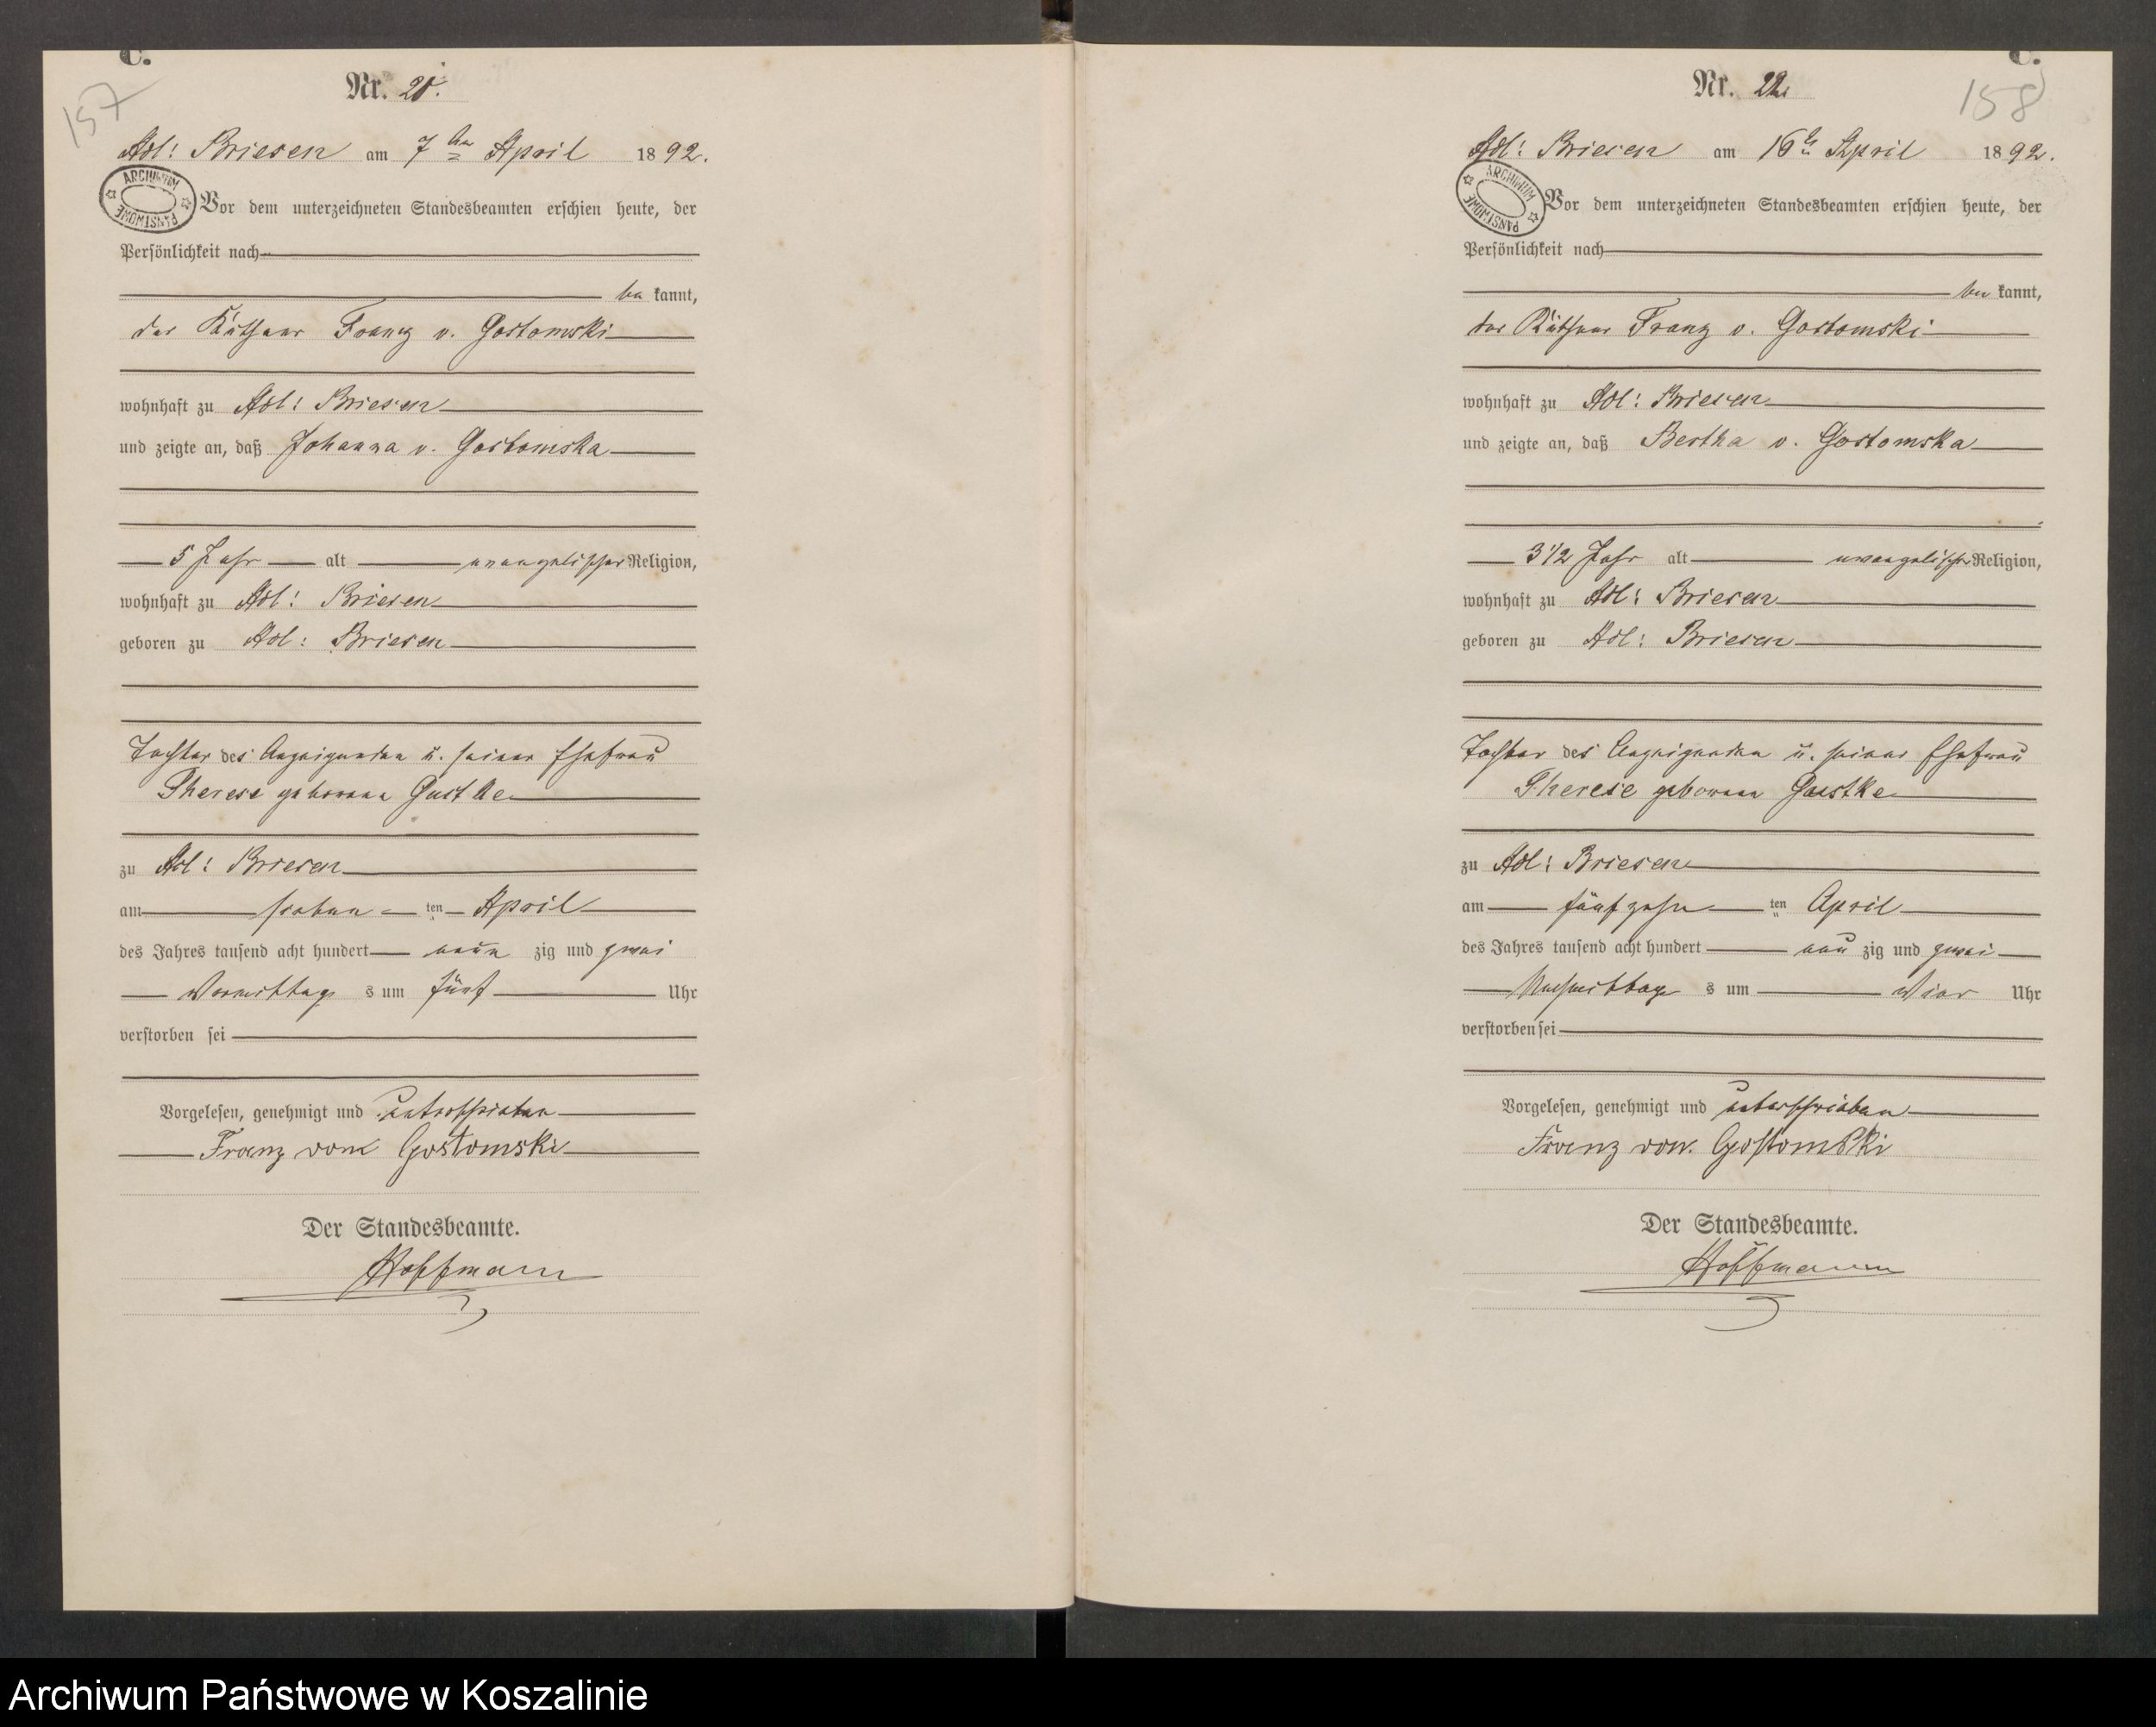 C.
157
Nr. 21.
Adl: Briesen am 7ten April 1892.
ARCHIWUM PAŃSTWOWE
Vor dem unterzeichneten Standesbeamten erschien heute, der
Persönlichkeit nach
be kannt,
der Käthner Franz v. Gostomski
wohnhaft zu Adl: Briesen
und zeigte an, daß Johanna v. Gostomska
5 Jahr alt evangelischer Religion,
wohnhaft zu Adl: Briesen
geboren zu Adl: Briesen
Tochter des Anzeigenden u. seiner Ehefrau
Therese geborene
zu Adl: Briesen
am sieben ten April
des Jahres tausend acht hundert neun zig und zwei
Vormittag s um fünf Uhr
verstorben sei
Vorgelesen, genehmigt und unterschrieben
Franz von Gostomski
Der Standesbeamte.
Hoffmann
C.
158
Nr. 22
Adl: Briesen am 16t April 1892.
ARCHIWUM PAŃSTWOWE
Vor dem unterzeichneten Standesbeamten erschien heute, der
Persönlichkeit nach
be kannt,
der Käthner Franz v. Gostomski
wohnhaft zu Adl: Briesen
und zeigte an, daß Bertha v. Gostomska
3 1/2 Jahr alt evangelischer Religion,
wohnhaft zu Adl: Briesen
geboren zu Adl: Briesen
Tochter des Anzeigenden u. seiner Ehefrau
Therese geborene
zu Adl: Briesen
am fünfzehn ten April
des Jahres tausend acht hundert neu zig und zwei
Nachmittag s um Vier Uhr
verstorben sei
Vorgelesen, genehmigt und unterschrieben
Franz von. Gostomski
Der Standesbeamte.
Hoffmann
Archiwum Państwowe w Koszalinie